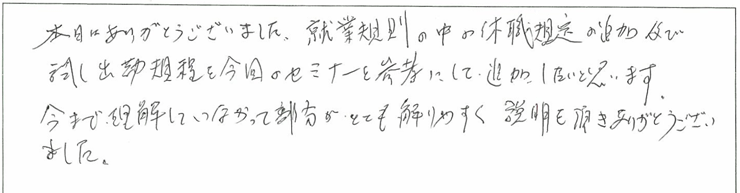 本日はありがとうございました、就業規則の中の休職規定の追加及び
試し出勤規程を今回のセミナーを参考にして追加したいと思います。
今まで理解していなかって部分が、とても解りやすく説明を頂きありがとうござい
ました。